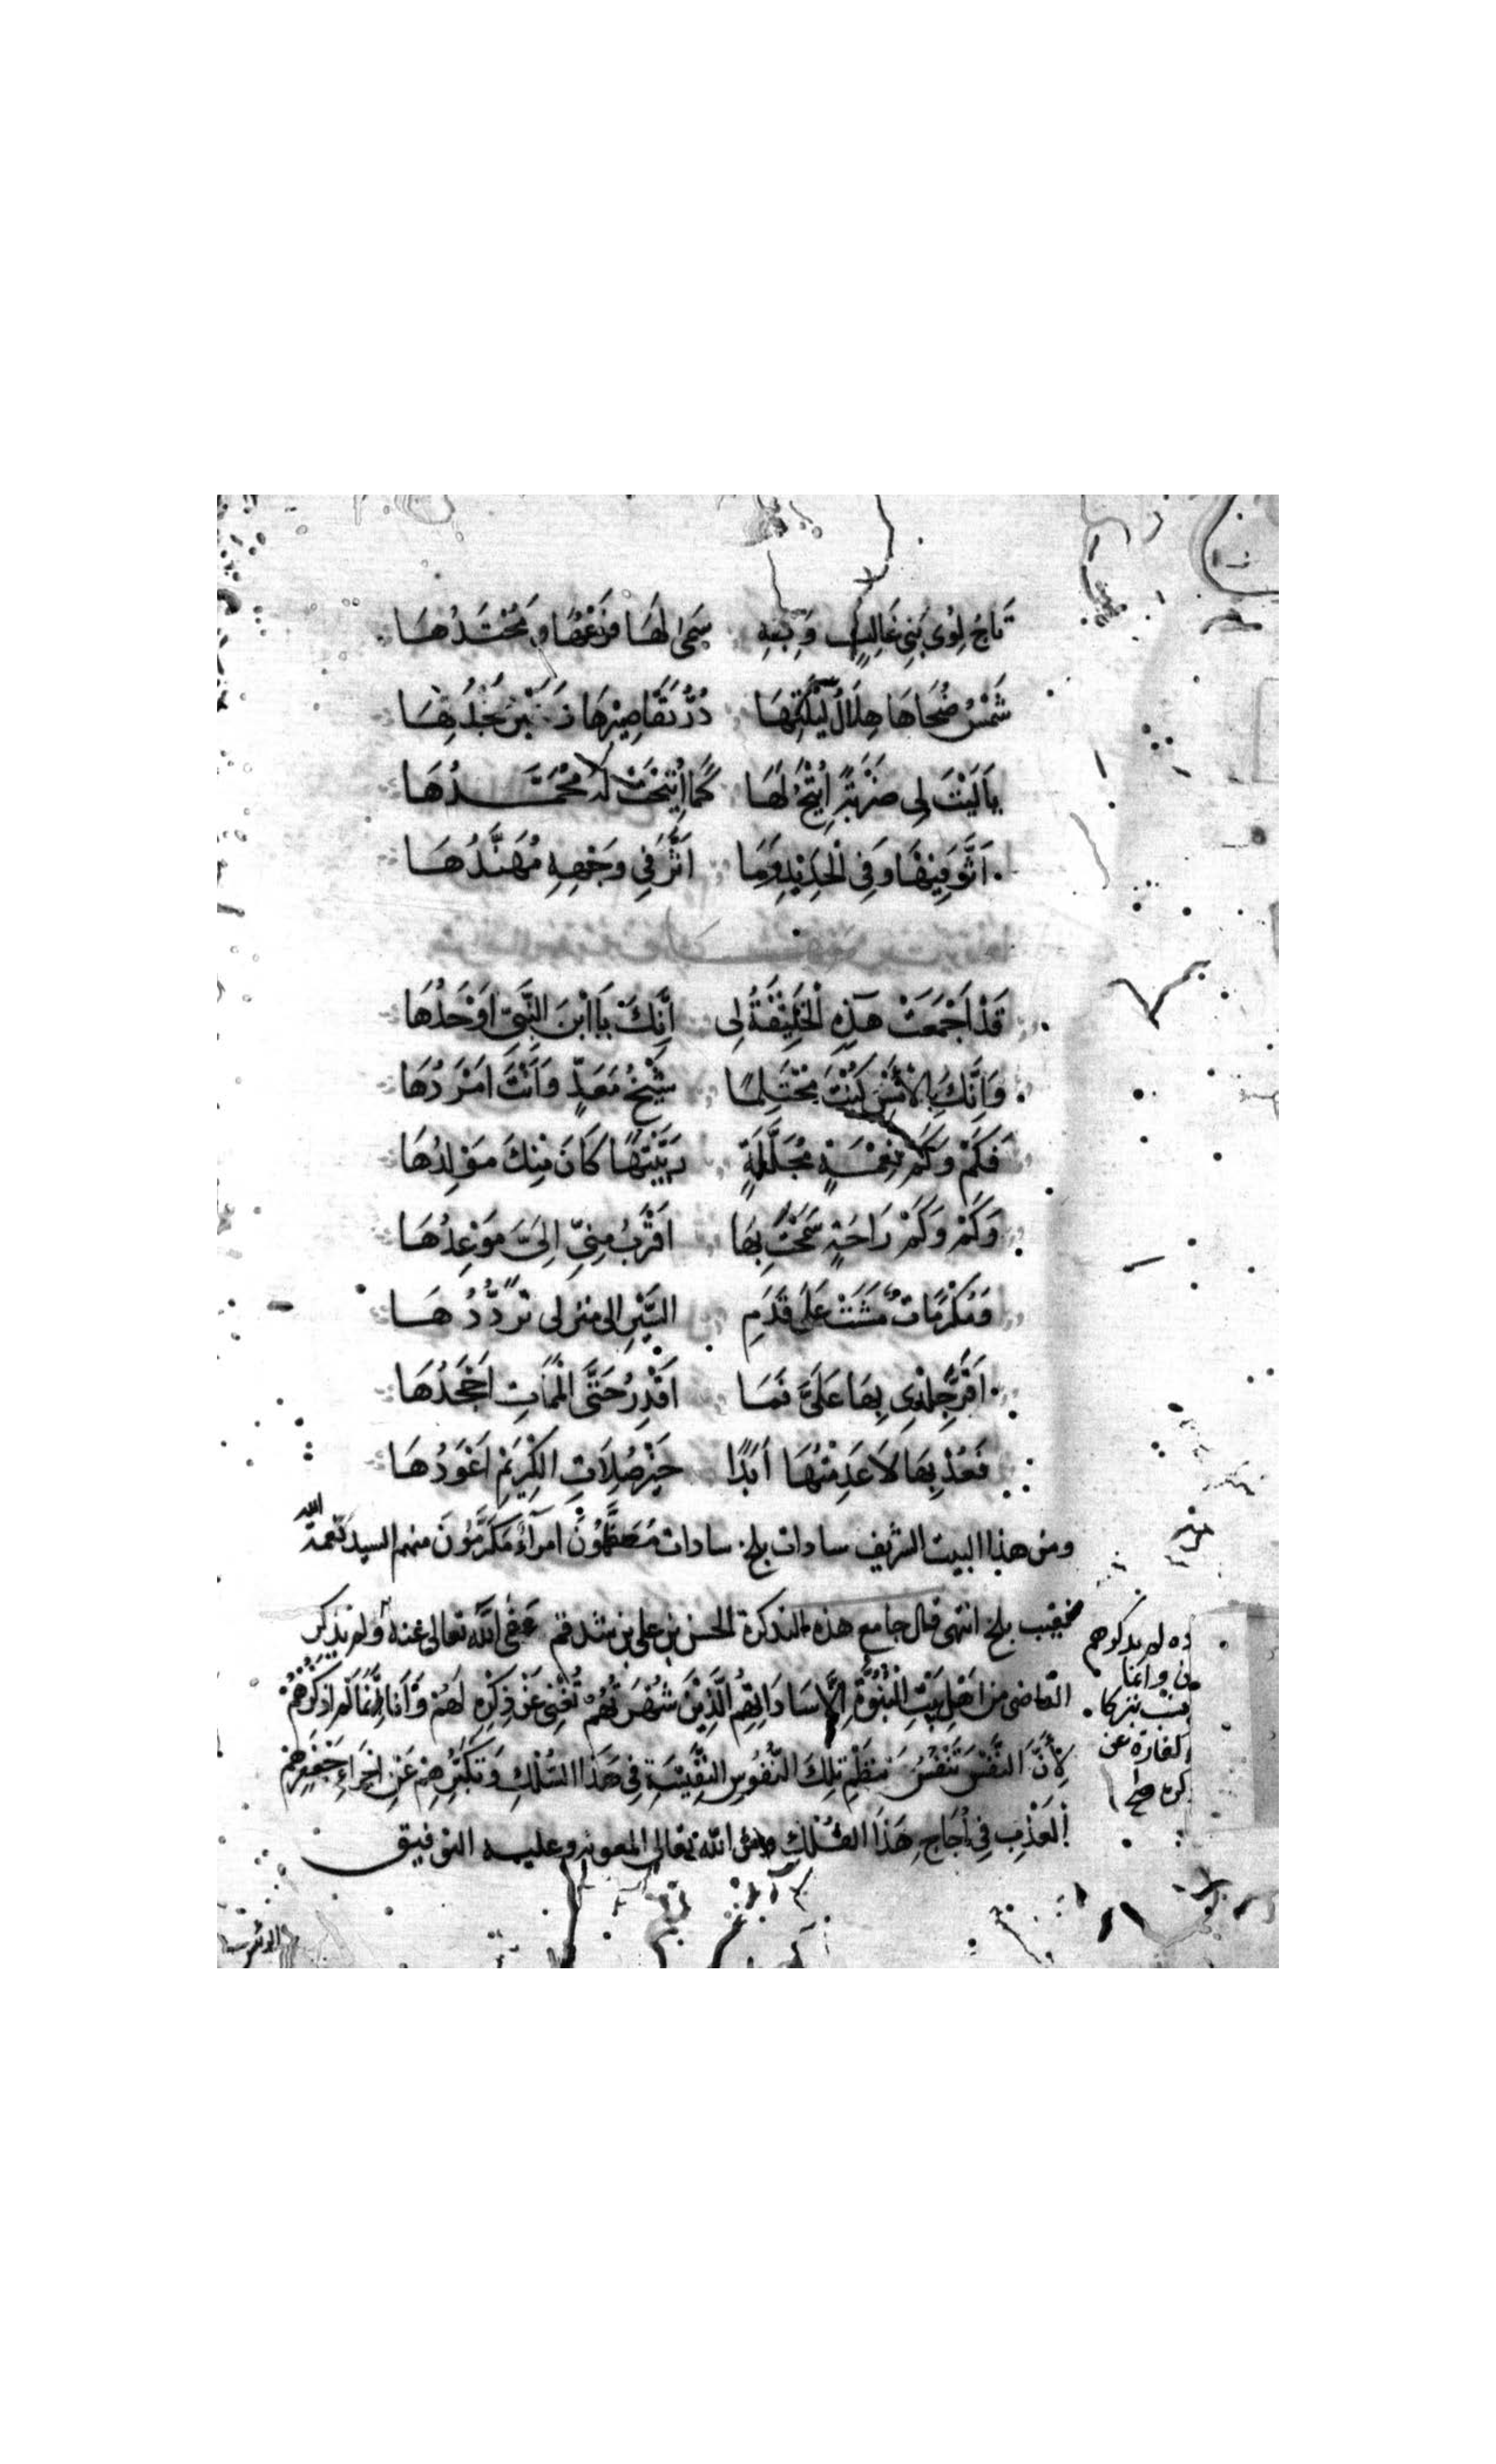 تَاجُ لِوُى بَنِى غَالِبٍ وَبِهِ سَمَى لَهَا فَرْعُهَا وَمَحْتَدُهَا
شَمْسُ ضُحَاهَا هِلَالُ لَيْلَتِهَا دُرُّ تَقَاصِيْرِهَا زَبَرْجَدُهَا
يَا لَيْتَ لِى ضَرْبَةً اُتِيْحُ لَهَا كَمَا اُتِيْحَتْ لَهُ مُحَمَّدُهَا
اَثَّرَ فِيْهَا وَفِى الْحَدِيْدِ وَمَا اَثَّرَ فِى وَجْهِهِ مُهَنَّدُهَا
قَدْ اَجْمَعَتْ هَذِهِ الْخَلِيْقَةُ لِى اَنَّكَ يَا ابْنَ النَّبِىِّ اَوْحَدُهَا
وَاَنَّكَ بِالْاَمْسِ كُنْتَ مُحْتَلِمًا شَيْخُ مَعَدٍّ وَاَنْتَ اَمْرَدُهَا
فَكَمْ وَكَمْ نِعْمَةٍ مُجَلَّلَةٍ رَبَّيْتَهَا كَانَ مِنْكَ مَوْلِدُهَا
وَكَمْ وَكَمْ رَاحَةٍ سَمَحْتَ بِهَا اَقْرَبُ مِنِّى اِلَىَّ مَوْعِدُهَا
وَمَكْرُمَاتٌ مَشَتْ عَلَى قَدَمِ البَّرِّ الى منزلى تُرَدِّدُهَا
اَقَرَّ جِلْدِى بِهَا عَلَىَّ فَمَا اَقْدِرُ حَتَّى الْمَمَاتِ اَجْحَدُهَا
فَعُدْ بِهَا لَا عَدِمْتُهَا اَبَدًا خَيْرُ صِلَاتِ الكَرِيْمِ اَعْوَدُهَا
ومن هذا البيت الشريف سادات بلخ سادات مُعَظَّمُوْنَ اُمَرَآءُ مُكَرَّمُوْنَ منهم السيد نعمة الله
نقيب بلخ انتهى قال جامع هذه التذكرة الحسن بن على بن شدقم عَفَى اللَّه تعالى عنه ولم يذكر
القاضى من اَهْلِ بَيْتِ النُّبُوَّةِ اِلَّا سَادَاتِهِمُ الَّذِيْنَ شُهْرَتُهُمْ تُغْنِى عَنْ ذِكْرِهِ لَهُمْ وَاَنَا اِنَّمَا لَمْ اَذْكُرْهُمْ
لِاَنَّ النَّفْسَ تَنْفَسُ بنَظْمِ تِلْكَ النُّفُوسِ النَّفِيْسَةِ فِى هَذَا السِّلْكِ وَتَكَبُّرِهِمْ عَنْ اِجْرَاءِ جَعْفَرِهِمْ
الْعَذْبِ فِى اُجَاجِ هَذَا الفُلْكِ ومن اللّه تعالى المعونة وعليه التوفيق
ولم يذكرهم
وانما
تبركا
عن
صح